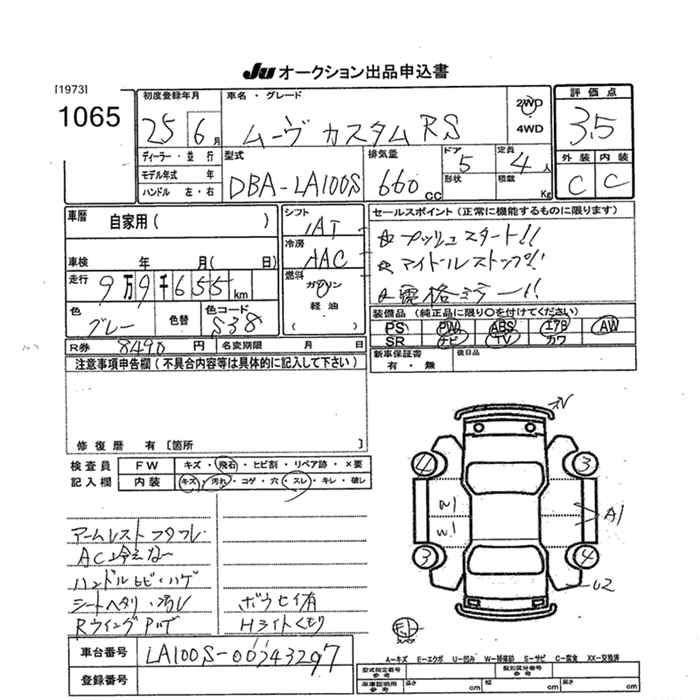 Ju オークション出品申込書
[1973]
1065
初度登録年月
25 6月
車名・グレード
ムーヴ カスタム RS
2WD
4WD
評価点
3.5
外装 内装
C C
ディーラー・並行
モデル年式 年
ハンドル 左・右
型式
DBA-LA100S
排気量
660 cc
ドア 5
形状
定員 4人
積載 Kg
車歴 自家用( )
シフト
IAT
冷房
AAC
燃料
ガソリン
軽油
( )
車検 年 月( 日)
走行 9万9千655km
色 グレー
色替
色コード S38
R券 8490円 名変期限 月 日
セールスポイント(正常に機能するものに限ります)
☆プッシュスタート!!
☆アイドルストップ!!
☆電格ミラー!!
装備品(純正品に限り○を付けてください)
PS PW ABS エアB AW
SR ナビ TV カワ
新車保証書 有・無
後日品
注意事項申告欄(不具合内容等は具体的に記入して下さい)
修復歴 有[箇所 ]
検査員 記入欄
FW キズ・飛石・ヒビ割・リペア跡・×要
内装 キズ・汚れ・コゲ・穴・スレ・キレ・破レ
アームレストフタフレ
AC冷えな〜
ハンドルヒビ・ハゲ
シートヘタリ・汚レ
ボウセイ有
Hライトくもり
車台番号 LA100S-00343297
登録番号
4 3
W1
W1
A1
3 4
U2
A-キズ E-エクボ U-凹み W-補修跡 S-サビ C-腐食 XX-交換済
型式指定番号 参考
類別区分番号 参考
車庫証明用 参考 長さ cm 幅 cm 高さ cm